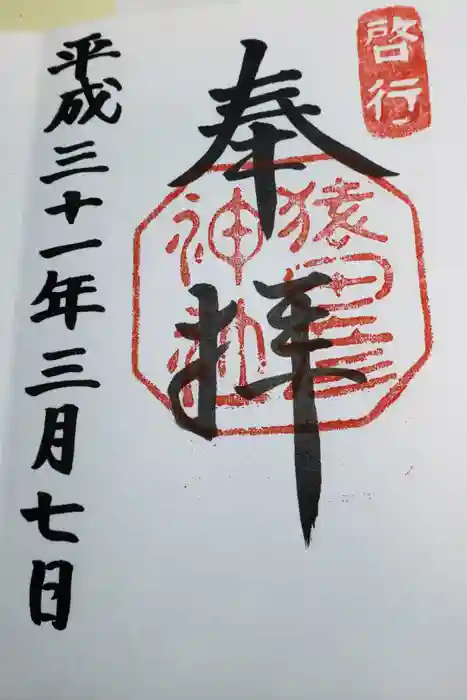 啓行
奉拝
猿田彦
神社
平成三十一年三月七日